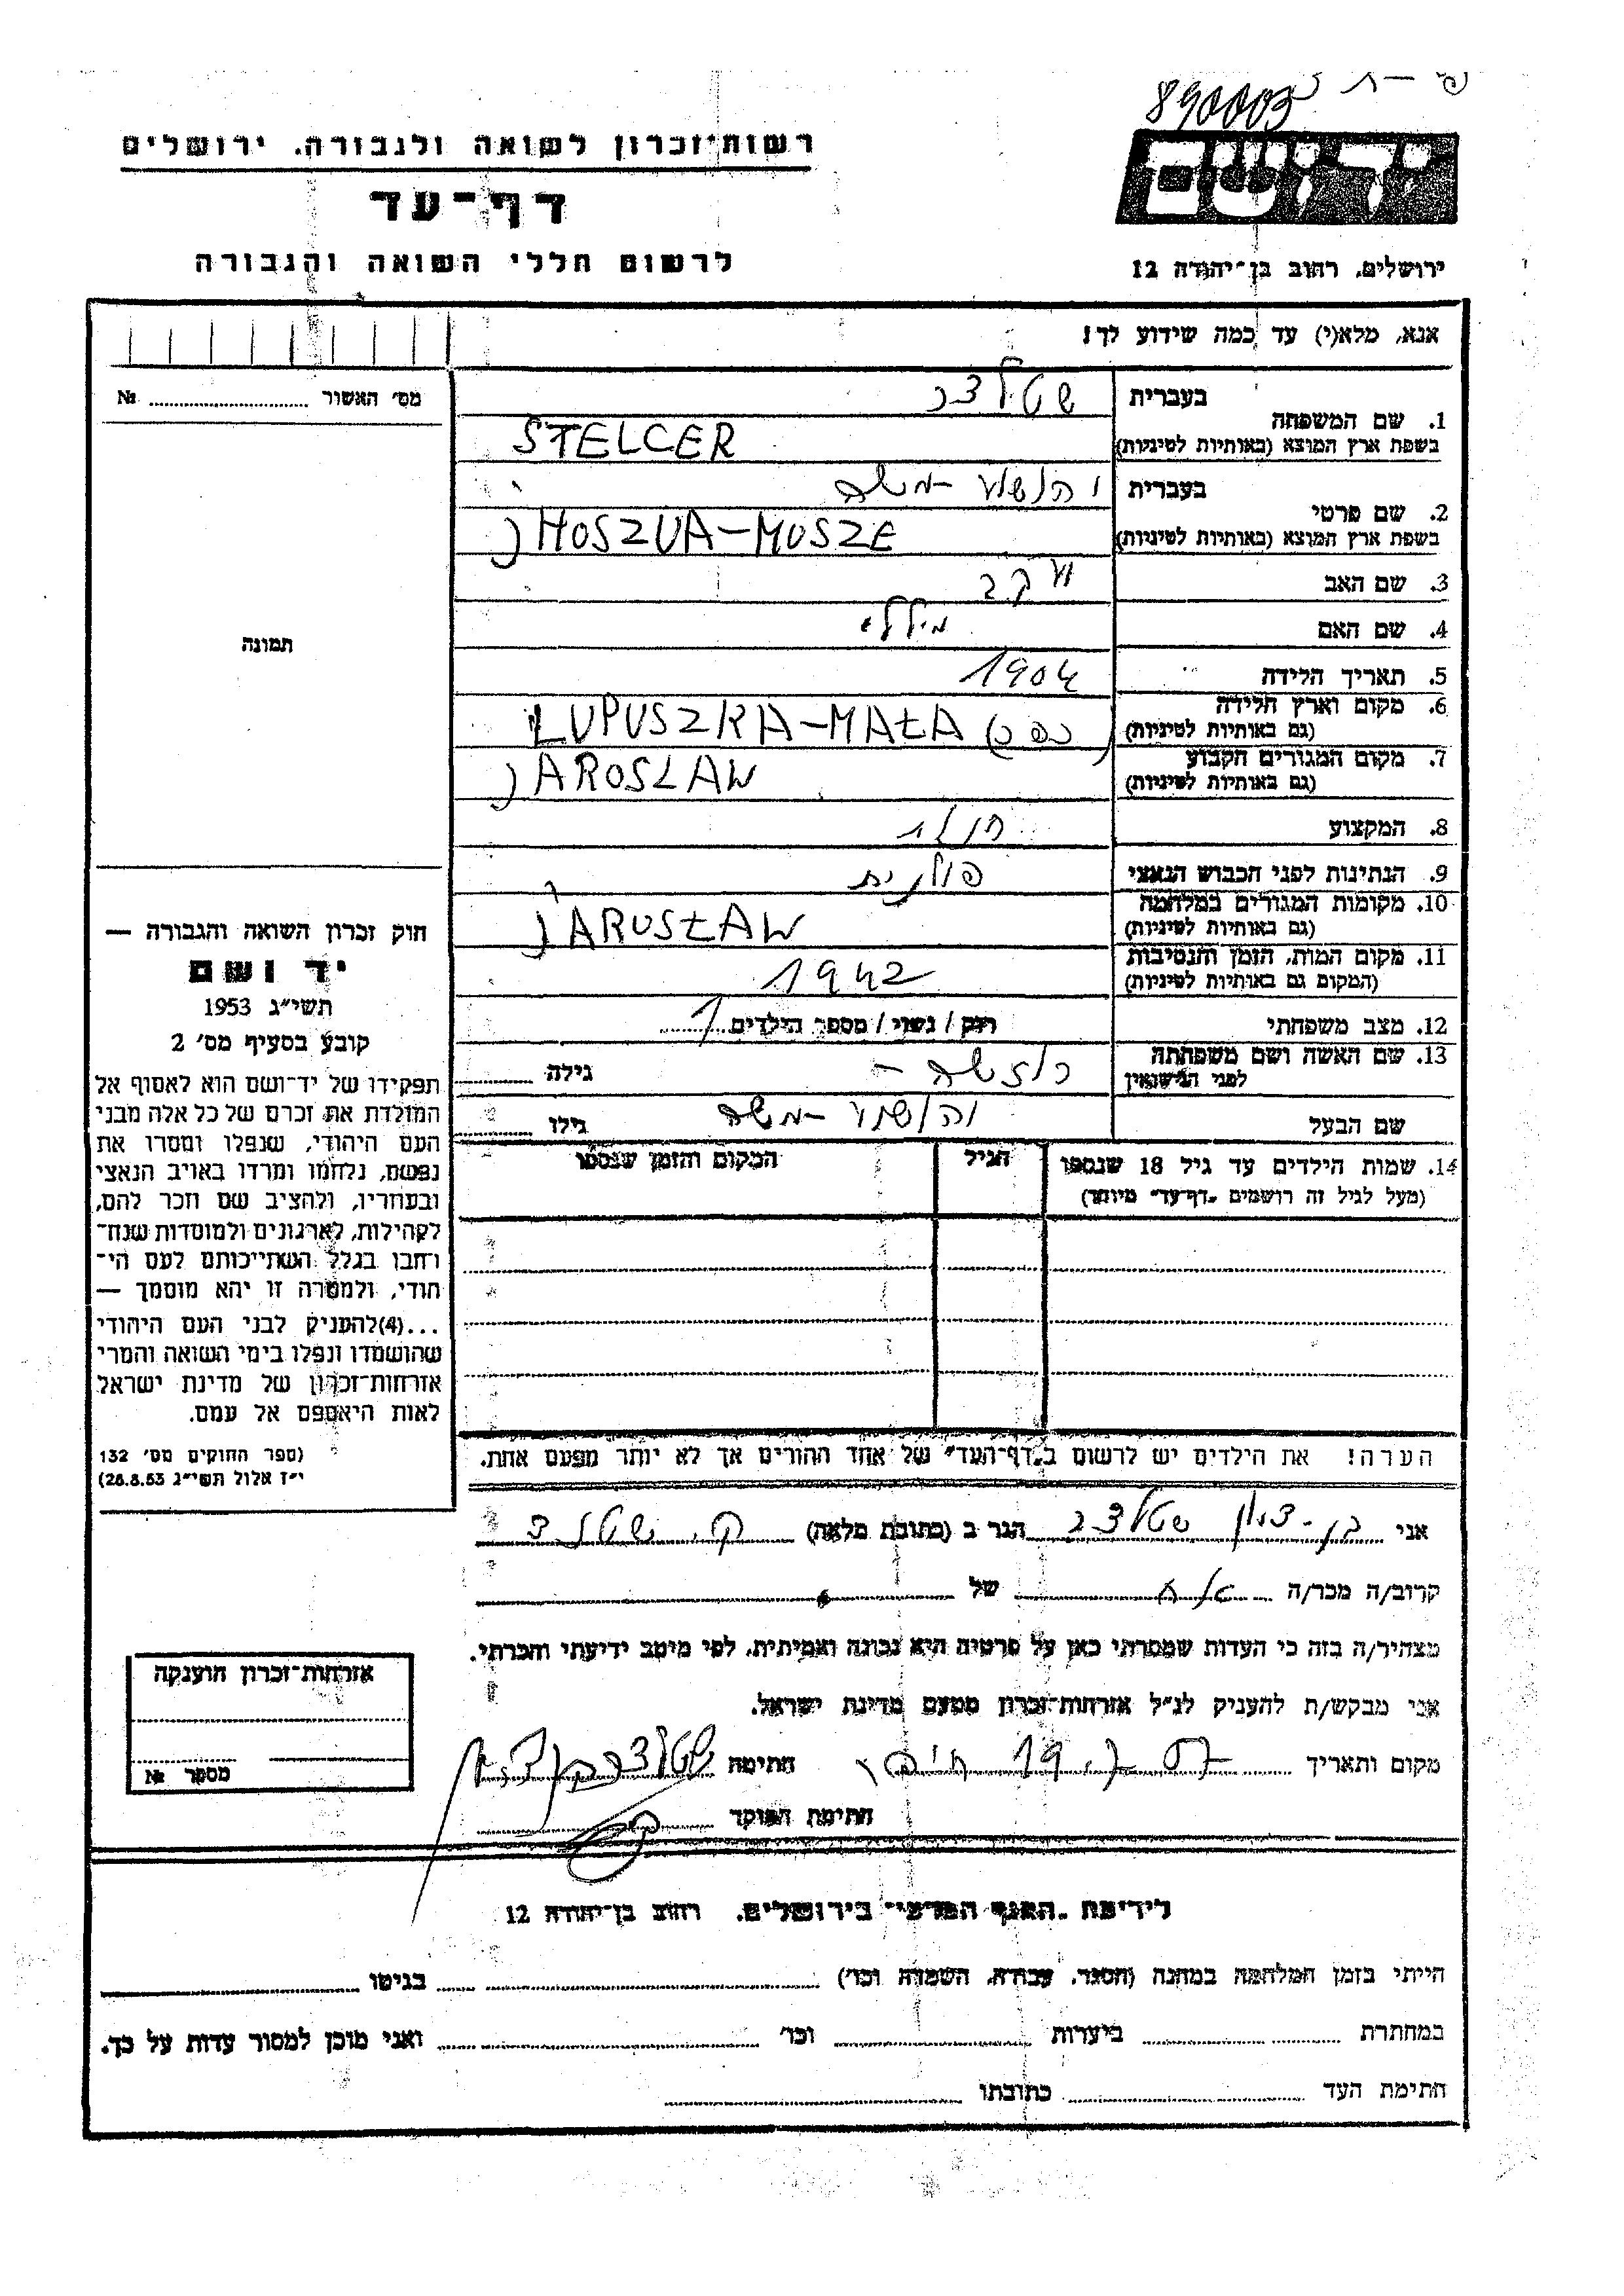 890003
רשות־זכרון לשואה ולגבורה. ירושלים
דף־עד
לרשום חללי השואה והגבורה
יד ושם
ירושלים, רחוב בן־יהודה 12
אנא, מלא(י) עד כמה שידוע לך!
מס׳ האשור № 
1. שם המשפחה
בעברית שטלצר
בשפת ארץ המוצא (באותיות לטיניות) STELCER
2. שם פרטי
בעברית יהושע-משה
בשפת ארץ המוצא (באותיות לטיניות) JHOSZUA-MOSZE
3. שם האב יעקב
4. שם האם
5. תאריך הלידה 1904
6. מקום וארץ הלידה
(גם באותיות לטיניות) LUPUSZKA-MAŁA (כפר)
7. מקום המגורים הקבוע
(גם באותיות לטיניות) JAROSLAW
8. המקצוע
9. הנתינות לפני הכבוש הנאצי פולנית
10. מקומות המגורים במלחמה
(גם באותיות לטיניות) JARUSŁAW
11. מקום המות, הזמן והנסיבות
(המקום גם באותיות לטיניות) 1942
12. מצב משפחתי רוק / נשוי / מספר הילדים 1
13. שם האשה ושם משפחתה
לפני הנישואין גילה
שם הבעל יהושע-משה גילו
14. שמות הילדים עד גיל 18 שנספו
(מעל לגיל זה רושמים „דף־עד״ מיוחד)
הגיל
המקום והזמן שנספו
הערה! את הילדים יש לרשום ב„דף־העד״ של אחד ההורים אך לא יותר מפעם אחת.
תמונה
חוק זכרון השואה והגבורה —
יד ושם
תשי״ג 1953
קובע בסעיף מס׳ 2
תפקידו של יד־ושם הוא לאסוף אל
המולדת את זכרם של כל אלה מבני
העם היהודי, שנפלו ומסרו את
נפשם, נלחמו ומרדו באויב הנאצי
ובעוזריו, ולהציב שם וזכר להם,
לקהילות, לארגונים ולמוסדות שנח־
רבו בגלל השתייכותם לעם הי־
הודי, ולמטרה זו יהא מוסמך —
...(4)להעניק לבני העם היהודי
שהושמדו ונפלו בימי השואה והמרי
אזרחות־זכרון של מדינת ישראל
לאות היאספם אל עמם.
(ספר החוקים מס׳ 132
י״ז אלול תשי״ג 28.8.53)
אני בן-ציון שטלצר הגר ב (כתובת מלאה)
קרוב/ה מכר/ה של
מצהיר/ה בזה כי העדות שמסרתי כאן על פרטיה היא נכונה ואמיתית, לפי מיטב ידיעתי והכרתי.
אני מבקש/ת להעניק לנ״ל אזרחות־זכרון מטעם מדינת ישראל.
מקום ותאריך חתימה
חתימת הפוקד
אזרחות־זכרון הוענקה
מספר №
לידיעת „האגף המדעי״ בירושלים, רחוב בן־יהודה 12
הייתי בזמן המלחמה במחנה (הסגר, עבודה, השמדה וכו׳) בגיטו
במחתרת ביערות וכו׳ ואני מוכן למסור עדות על כך.
חתימת העד כתובתו